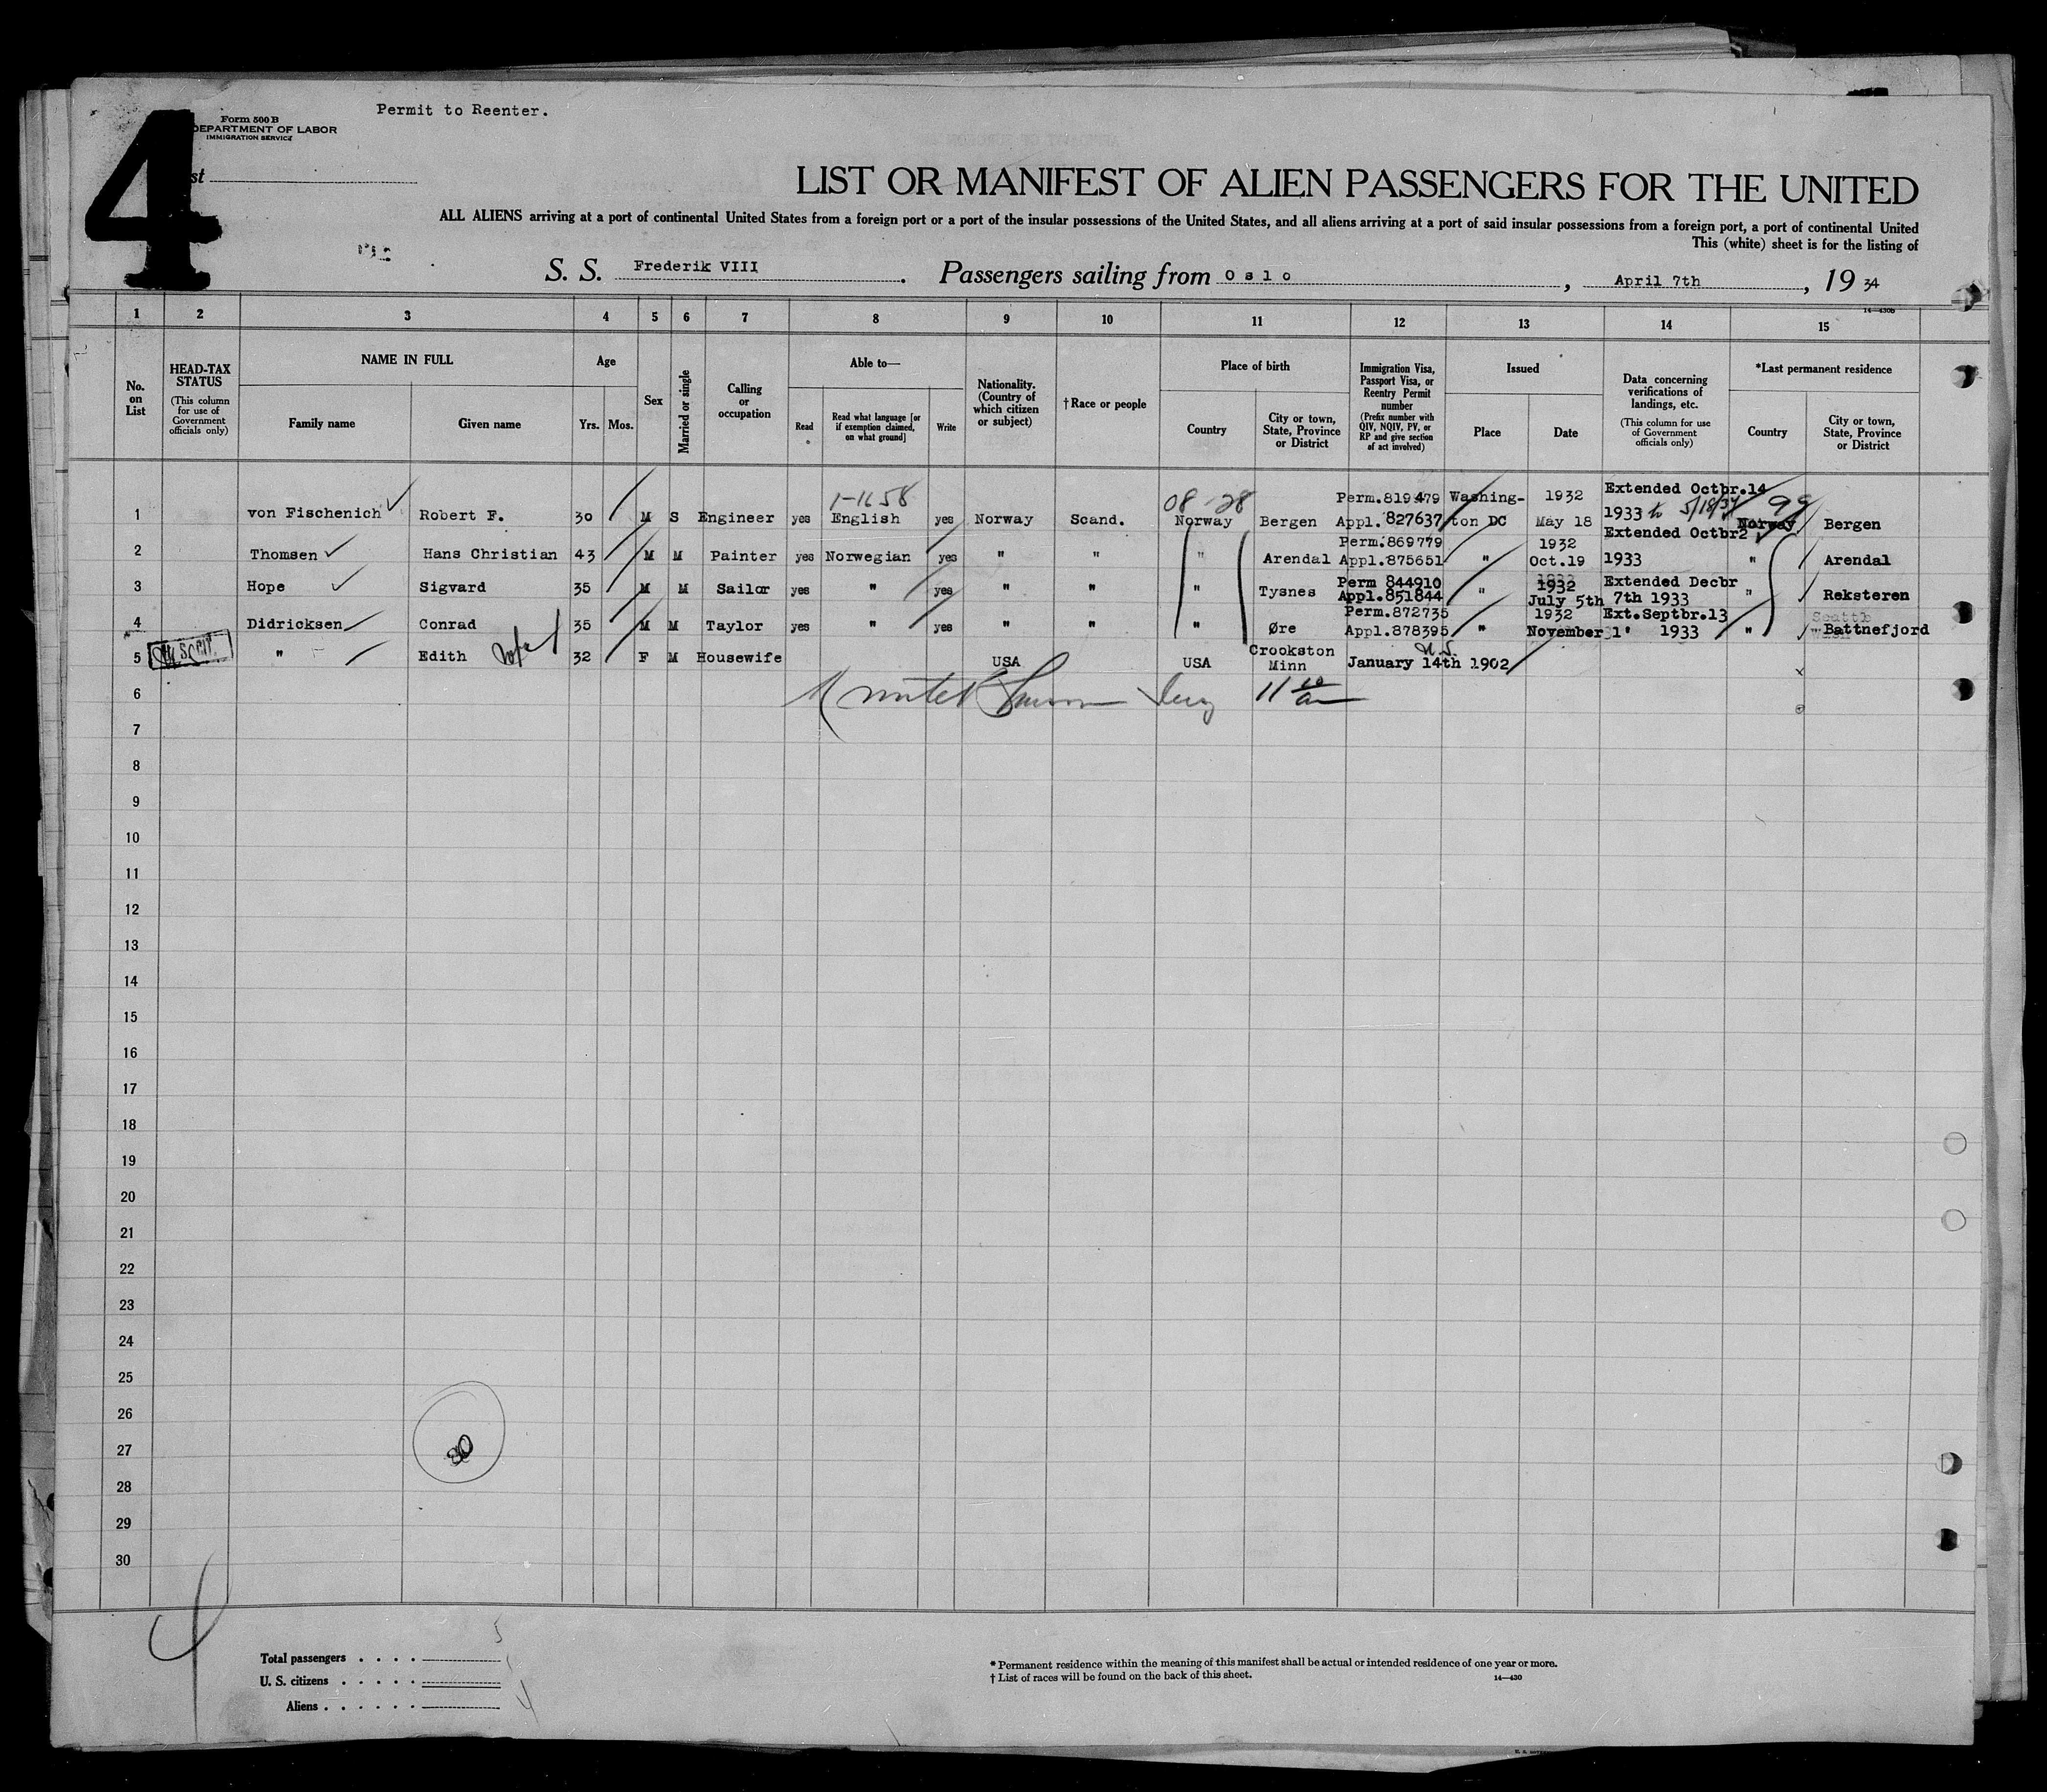 Permit to Reenter.
Form 500 B
DEPARTMENT OF LABOR
IMMIGRATION SERVICE
4
st
LIST OR MANIFEST OF ALIEN PASSENGERS FOR THE UNITED
ALL ALIENS arriving at a port of continental United States from a foreign port or a port of the insular possessions of the United States, and all aliens arriving at a port of said insular possessions from a foreign port, a port of continental United
This (white) sheet is for the listing of
S. S. Frederik VIII . Passengers sailing from Oslo , April 7th , 19 34
14—430b
1 2 3 4 5 6 7 8 9 10 11 12 13 14 15
No. on List
HEAD-TAX STATUS
(This column for use of Government officials only)
NAME IN FULL
Family name Given name
Age
Yrs. Mos.
Sex
Married or single
Calling or occupation
Able to—
Read Read what language [or if exemption claimed, on what ground] Write
Nationality. (Country of which citizen or subject)
†Race or people
Place of birth
Country City or town, State, Province or District
Immigration Visa, Passport Visa, or Reentry Permit number
(Prefix number with QIV, NQIV, PV, or RP and give section of act involved)
Issued
Place Date
Data concerning verifications of landings, etc.
(This column for use of Government officials only)
*Last permanent residence
Country City or town, State, Province or District
1-1658 08-28 Perm.819479 Washing- 1932 Extended Octbr.14 99
1 von Fischenich Robert F. 30 M S Engineer yes English yes Norway Scand. Norway Bergen Appl.827637 ton DC May 18 1933 to 5/18/34 Norway Bergen
Perm.869779 1932 Extended Octbr2
2 Thomsen Hans Christian 43 M M Painter yes Norwegian yes " " " Arendal Appl.875651 " Oct.19 1933 " Arendal
Perm 844910 1932 Extended Decbr
3 Hope Sigvard 35 M M Sailor yes " yes " " " Tysnes Appl.851844 " July 5th 7th 1933 " Reksteren
Perm.872735 1932 Ext.Septbr.13 Seattle
4 Didricksen Conrad 35 M M Taylor yes " yes " " " Øre Appl.878395 " November 1' 1933 " Battnefjord
U.S.
5 " Edith 32 F M Housewife USA USA Crookston Minn January 14th 1902
6 11 10 am
7
8
9
10
11
12
13
14
15
16
17
18
19
20
21
22
23
24
25
26
27
28
29
30
30
Total passengers 5
U. S. citizens 1
Aliens 4
* Permanent residence within the meaning of this manifest shall be actual or intended residence of one year or more.
† List of races will be found on the back of this sheet.
14—430